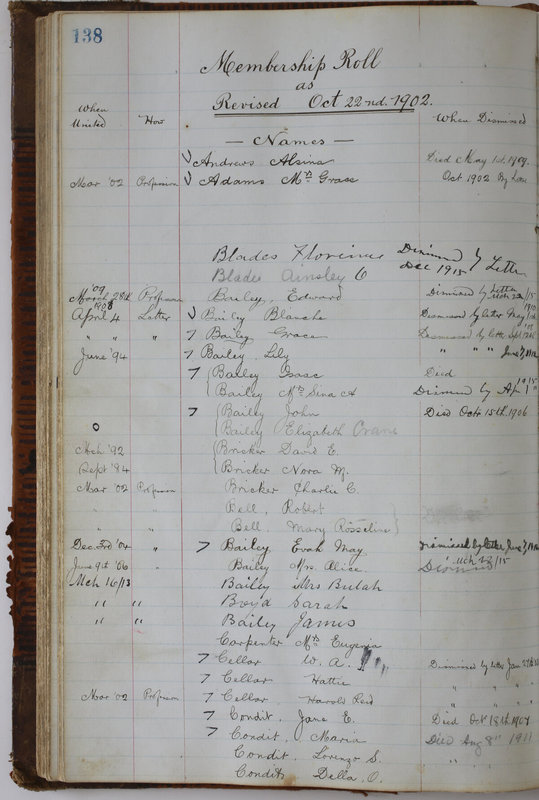 138
Membership Roll
as
Revised Oct 22nd. 1902.
When United How — Names — When Dismissed
Andrews Alsina Died May 1st. 1909.
Mar '02 Profession Adams Mrs Grace Oct 1902 By Letter
Blades Florence Dismissed by Letter Dec 1915
Blades Ainsley C
March 28th '09 Profession Bailey, Edward Dismissed by Letter Mch 28/15
April 4 1908 Letter Bailey Blanche Dismissed by letter May
" " " Bailey Grace Dismissed by letter Sept.
June '94 Bailey, Lily " " " June
Bailey Isaac Died
Bailey Mrs Sina A Dismissed by Ap 1915
Bailey John Died Oct 15th. 1906
o Bailey Elizabeth Crane
Mch '92 Bricker David E.
Sept '84 Bricker Nora M.
Mar '02 Profession Bricker Charlie C.
" " Bell, Robert
" " Bell, Mary Rosseline
Dec. 3rd '04 " Bailey Evah May Dismissed by letter June
June 9th '06 " Bailey Mrs. Alice. Dismissed Mch 28/15
Mch 16/13 Bailey Mrs Bulah
" " Boyd Sarah
" " Bailey James
Carpenter Mrs Eugenia
Cellar W. A. Dismissed by letter Jan.
Cellar Hattie " " "
Mar '02 Profession Cellar, Harold Reid " " "
Condit, Jane E. Died Oct 18th 1907
Condit, Maria Died Aug 8" 1911
Condit, Lorenzo S. " "
Condit Della, O.